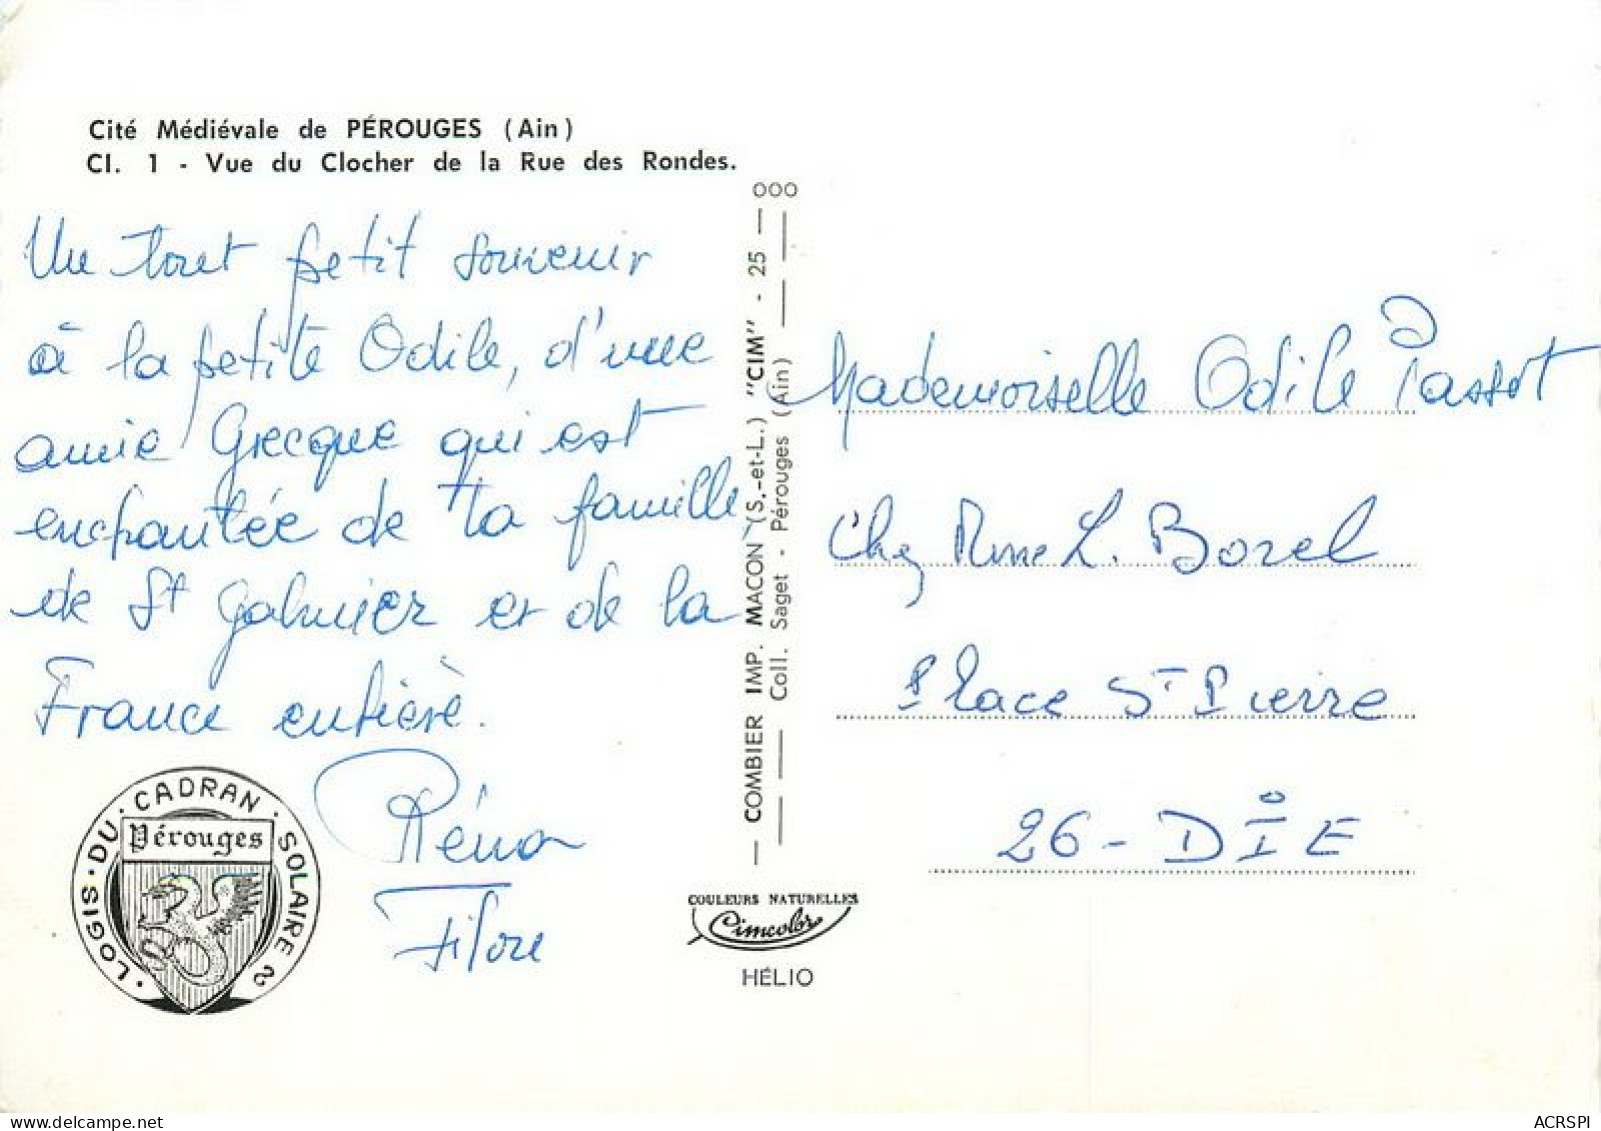 Cité Médiévale de PÉROUGES (Ain)
Cl. 1 - Vue du Clocher de la Rue des Rondes.
Un tout petit souvenir
à la petite Odile, d'une
amie Grecque qui est
enchantée de la famille
de St Galmier et de la
France entière.
Réna
LOGIS · DU · CADRAN · SOLAIRE
Pérouges
COMBIER IMP. MACON (S.-et-L.) "CIM" - 25 — 000
Coll. Saget - Pérouges (Ain)
COULEURS NATURELLES
Cimcolor
HÉLIO
Mademoiselle Odile Passot
Chez Mme L. Borel
Place St Pierre
26 - DIE
delcampe.net
ACRSPI